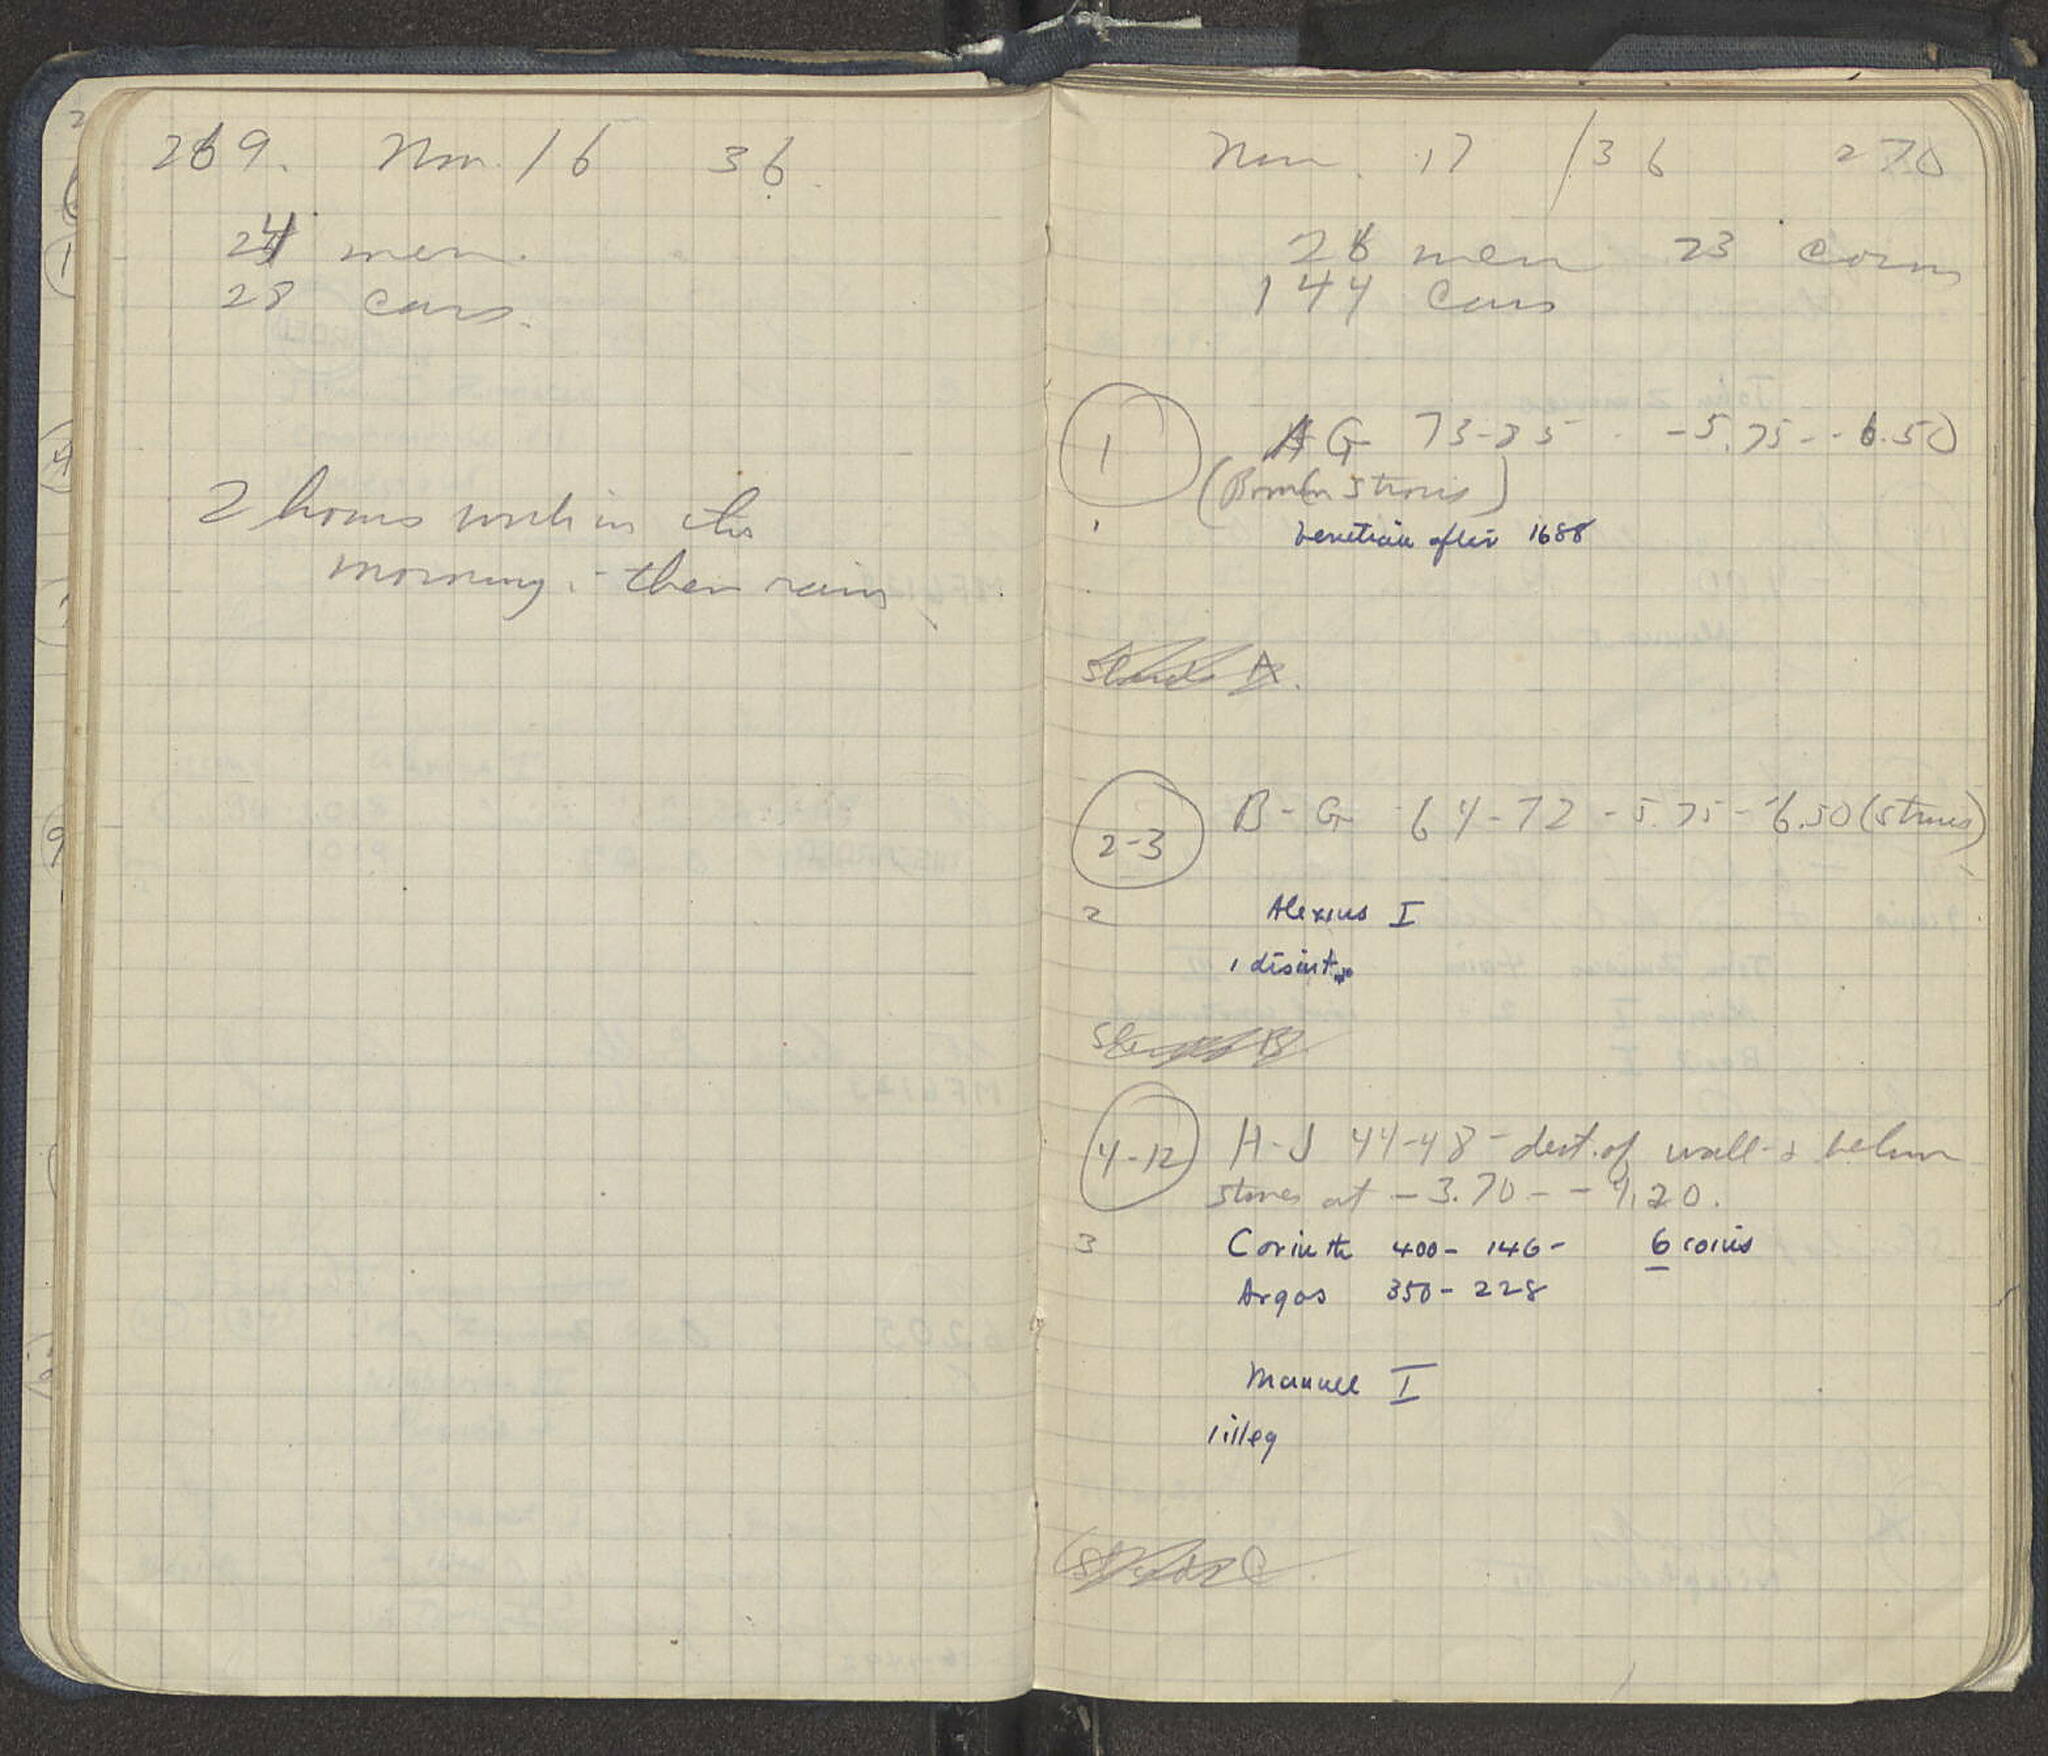 269. Nov. 16 36.
24 men.
28 cars.
2 hours work in the
morning, - then rain
Nov. 17 /36 270
28 men 23 coins
144 cars
1 AG 73-85 -5.75--6.50
(Bomb Strosis)
1 Venetian after 1688
A.
2-3 B-G 64-72 -5.75--6.50 (Strosis)
2 Alexius I
1 disint.
B
4-12 H-J 44-48 - dest. of wall & below
stones at -3.70--4.20.
3 Corinth 400-146- 6 coins
Argos 350-228
Manuel I
1 illeg
C